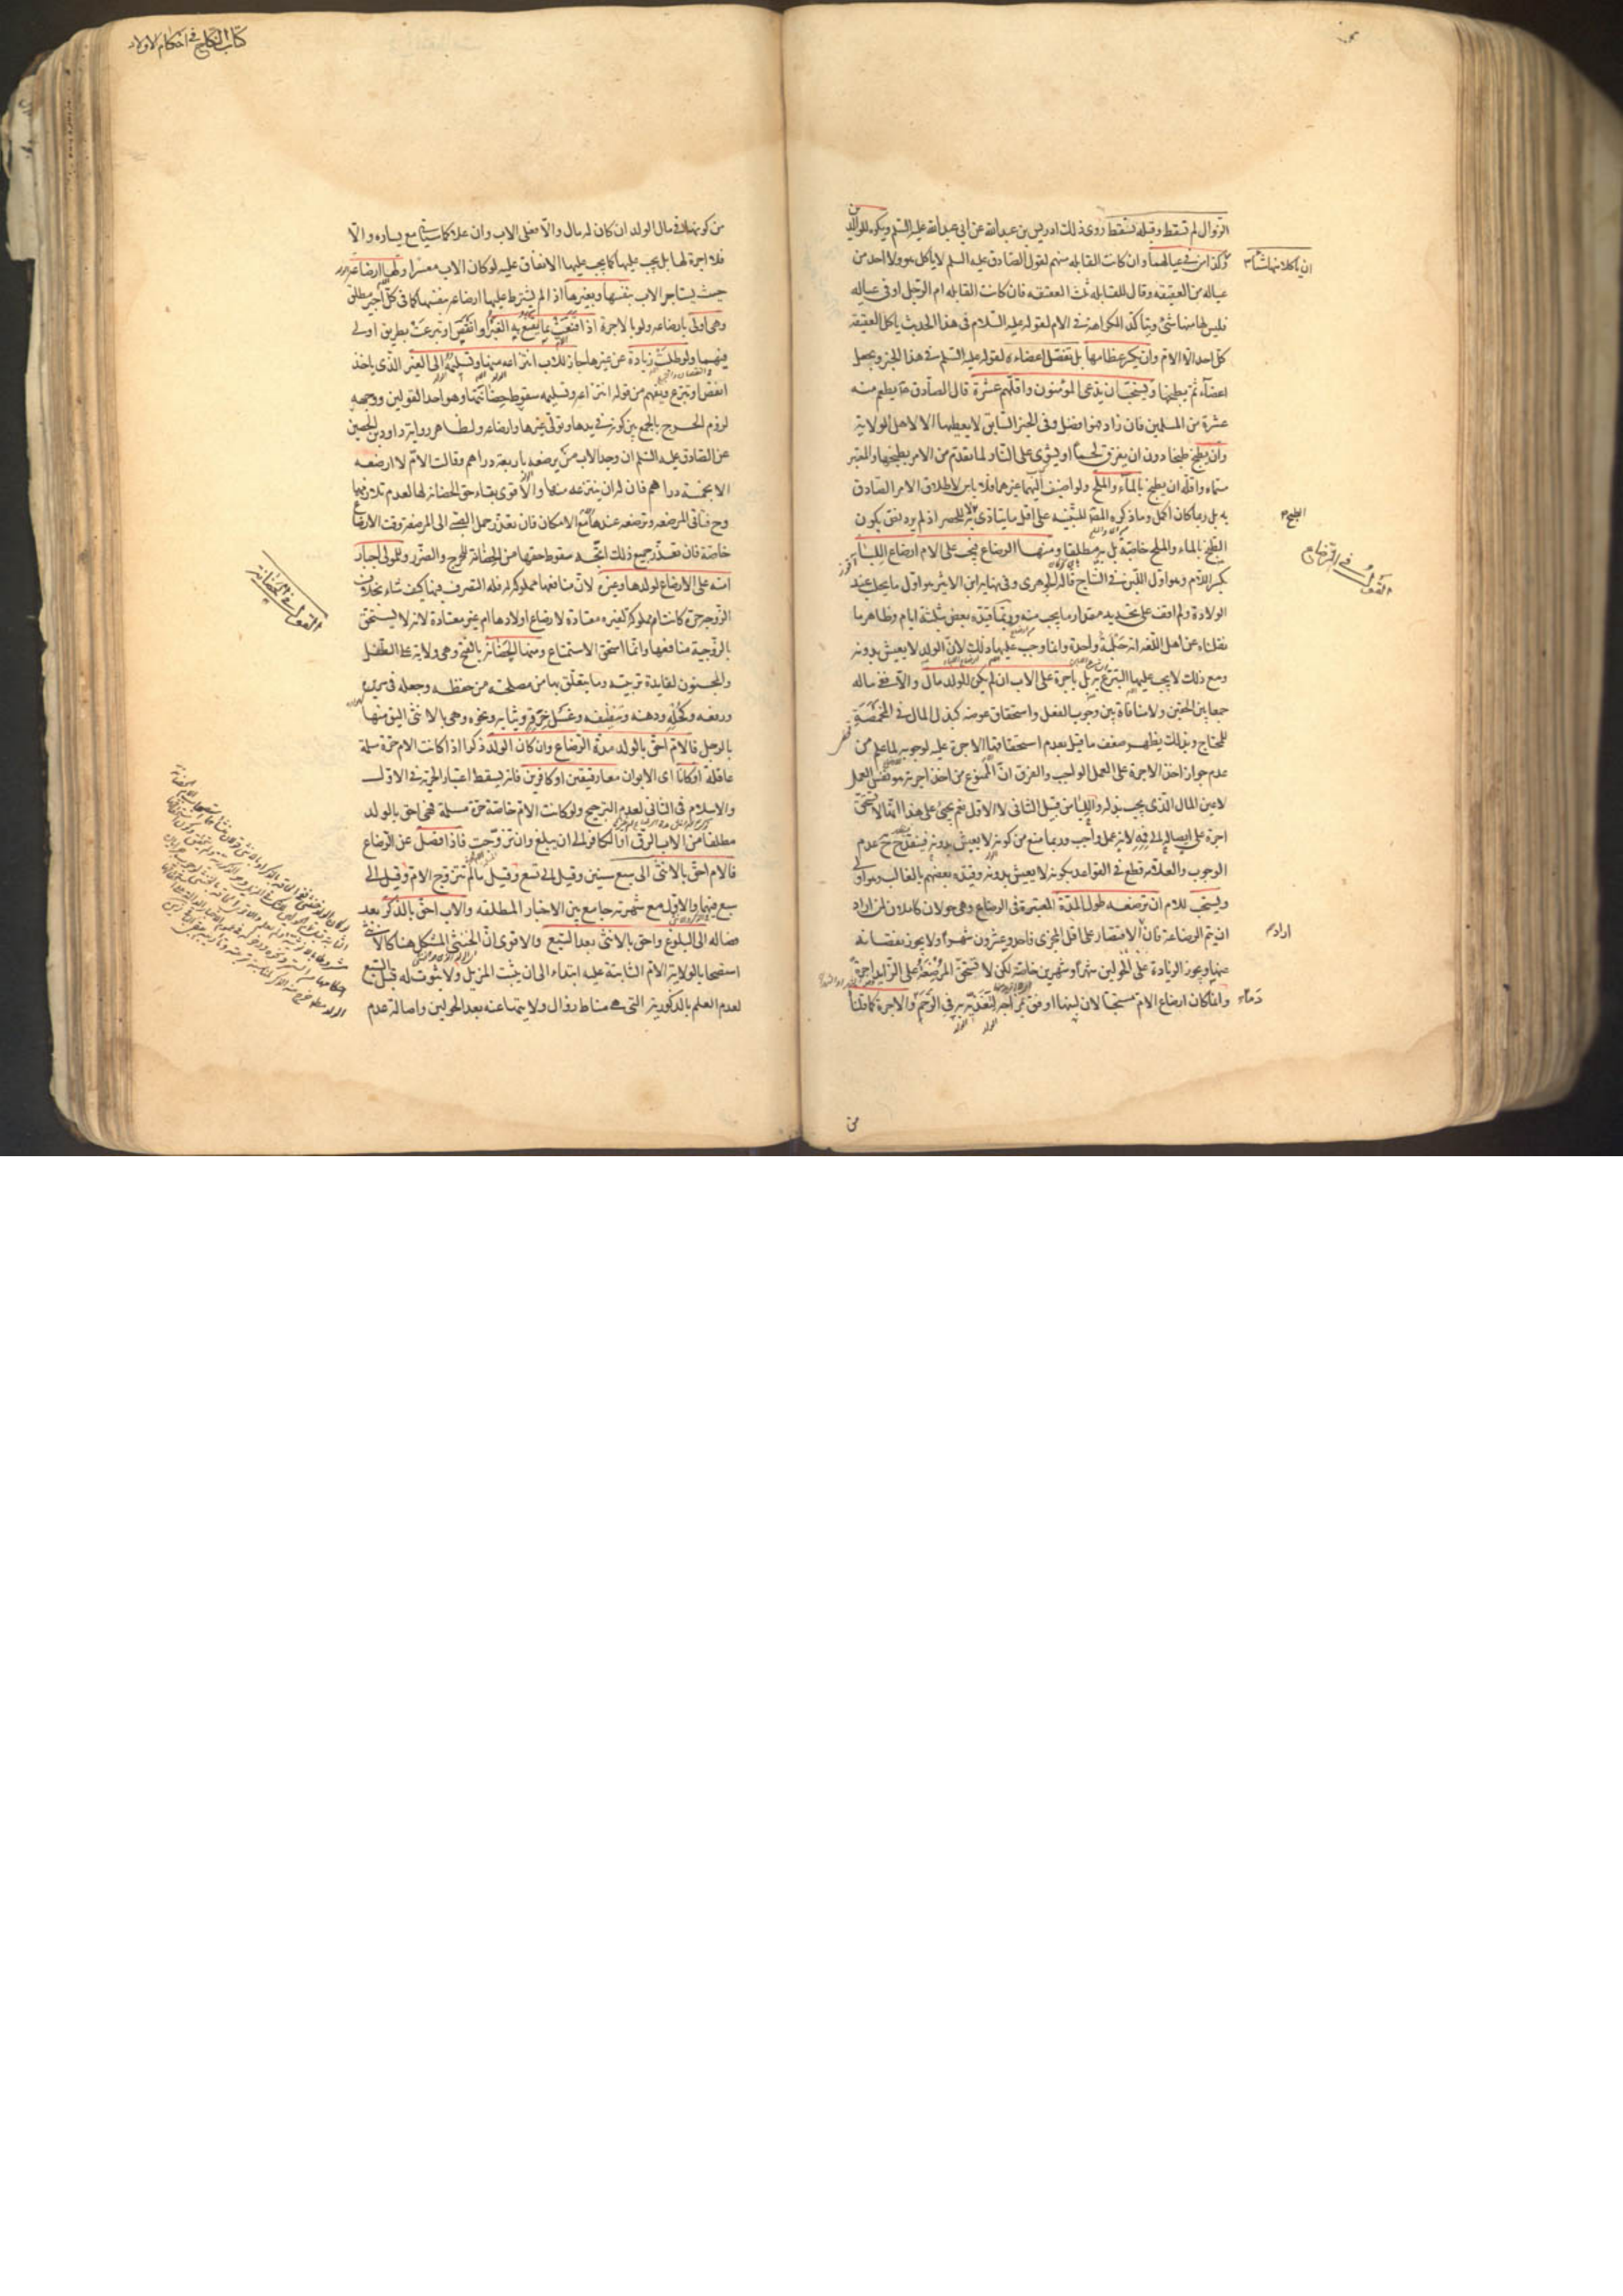 الزوال لم تسقط وقبله تسقط روى ذلك ادريس بن عبدالله عن ابي عبدالله عليه السلم ويكره للوالدين
ان ياكلا منها شيئا
وكذا من في عيالهما وان كانت القابلة منهم لقول الصادق عليه السلم لا ياكل هو ولا احد من
عياله من العقيقه وقال للقابلة ثلث العقيقه فان كانت القابله ام الرجل او في عياله
فليس لها منها شئ ويتأكد الكراهة في الام لقوله عليه السلام في هذا الحديث ياكل العقيقة
كل احد الا الام وان يكسر عظامها بل تفصل اعضاء لقوله عليه السلم في هذا الخبر ويجعل
اعضآء ثم يطبخها ويستحب ان يدعى المؤمنون واقلهم عشرة قال الصادق ع يطعم منه
عشرة من المسلمين فان زاد فهو افضل وفي الخبر السابق لا يعطيها الا لاهل الولاية
وان يطبخ طبخا دون ان يفرق لحما او يشوى على النار لما تقدم من الامر بطبخها والمعتبر
مسماه واقله ان يطبخ بالمآء والملح ولو اضيف اليهما غيرهما فلا باس لاطلاق الامر الصادق
به بل ربما كان اكمل وما ذكره المص للتنبيه على اقل ما يتادى به لا للحصر اذ لم يرد نص بكون
الطبخ بالماء والملح خاصة بل به مطلقا ومنها الرضاع فيجب على الام ارضاع اللبأ
القول في الرضاع
بكسر اللام وهو اول اللبن في النتاج قاله الجوهرى وفى نهاية ابن الاثير هو اول ما يحلب عند
الولادة ولم اقف على تحديد مقدار ما يجب منه وربما قيده بعض بثلثة ايام وظاهر ما
نقلناه عن اهل اللغه انه حلبة واحدة وانما وجب عليها ذلك لان الولد لا يعيش بدونه
ومع ذلك لا يجب عليها التبرع به بل باجرة على الاب ان لم يكن للولد مال والا ففي ماله
جمعا بين الحقين ولا منافاة بين وجوب الفعل واستحقاق عوضه كبذل المال في المخمصة
للمحتاج وبذلك يظهر ضعف ما قيل بعدم استحقاقها الاجرة عليه لوجوبه لما علم من
عدم جواز اخذ الاجرة على العمل الواجب والفرق ان الممنوع من اخذ اجرته هو نفس العمل
لا عين المال الذي يجب بذله واللبأ من قبيل الثانى لا الاول نعم يجئ على هذا انها لا تستحق
اجرة على ايصاله الى فمه لانه عمل واجب وربما منع من كونه لا يعيش بدونه فينقدح ح عدم
الوجوب والعلامة قطع في القواعد بكونه لا يعيش بدونه وقيده بعضهم بالغالب وهو اولى
ويستحب للام ان ترضعه طول المدة المعتبرة في الرضاع وهي حولان كاملان لمن اراد
ان يتم الرضاعة فان اراد الاقتصار على اقل المجزى فاحد وعشرون شهرا ولا يجوز نقصانه
عنها ويجوز الزيادة على الحولين شهرا وشهرين خاصة لكن لا تستحق المرضعة على الزايد اجرة
وانما كان ارضاع الام مستحبا لان لبنها اوفق بمزاجه لتغذيه به في الرحم دما والاجرة كما قلناه
كتاب النكاح في احكام الاولاد
من كونها في مال الولد ان كان له مال والا فعلى الاب وان علا كما سياتي مع يساره والا
فلا اجرة لها بل يجب عليها كما يجب عليها الانفاق عليه لو كان الاب معسرا ولها ارضاعه
حيث يستاجر الاب بنفسها وبغيرها اذا لم يشترط عليها ارضاعه بنفسها كما في كل اجير مطلق
وهي اولى بارضاعه ولو بالاجرة اذا قنعت بما يقنع به الغير او انقص او تبرعت بطريق اولى
فيهما ولو طلبت زيادة عن غيرها جاز للاب انتزاعه منها وتسليمه الى الغير الذى ياخذ
انقص او يتبرع ويفهم من قوله انتزاعه وتسليمه سقوط حضانتها وهو احد القولين ووجهه
لزوم الحرج بالجمع بين كونه في يدها وتولى غيرها وارضاعه ولظاهر رواية داود بن الحصين
عن الصادق عليه السلم ان وجد الاب من يرضعه باربعة دراهم وقالت الام لا ارضعه
الا بخمسة دراهم فان له ان ينزعه منها والاقوى بقاء حق الحضانة لها لعدم تلازمهما
وح فتاتى المرضعه وترضعه عندها مع الامكان فان تعذر حمل الصبي الى المرضعة وقت الارضاع
خاصة فان تعذر جميع ذلك اتجه سقوط حقها من الحضانة للحرج والضرر وللمولى اجبار
امته على الارضاع لولدها وغيره لان منافعها مملوكة له فله التصرف فيها كيف شاء بخلاف
القول في الحضانة
الزوجة حرة كانت ام مملوكة لغيره معتادة لارضاع اولادها ام غير معتادة لانه لا يستحق
بالزوجية منافعها وانما استحق الاستمتاع ومنها الحضانة بالفتح وهي ولاية على الطفل
والمجنون لفايدة تربيته وما يتعلق بها من مصلحته من حفظه وجعله في سريره
ورفعه وكحله ودهنه وتنظيفه وغسل خرقه وثيابه ونحوه وهي بالانثى اليق منها
بالرجل فالام احق بالولد مدة الرضاع وان كان الولد ذكرا اذا كانت الام حرة مسلمة
عاقلة او كانا اى الابوان معا رقيقين او كافرين فانه يسقط اعتبار الحرية في الاول
والاسلام في الثانى لعدم الترجيح ولو كانت الام خاصة حرة مسلمة فهي احق بالولد
مطلقا من الاب الرق او الكافر الى ان يبلغ وان تزوجت فاذا فصل عن الرضاع
فالام احق بالانثى الى سبع سنين وقيل الى تسع وقيل ما لم تتزوج الام وقيل الى
سبع فيهما والاول مع شهرته جامع بين الاخبار المطلقه والاب احق بالذكر بعد
فصاله الى البلوغ واحق بالانثى بعد السبع والاقوى ان الخنثى المشكل هنا كالانثى
استصحابا لولاية الام الثابتة عليه ابتداء الى ان يثبت المزيل ولا ثبوت له قبل السبع
لعدم العلم بالذكورية التى هي مناط زوال ولايتها عنه بعد الحولين واصالة عدم